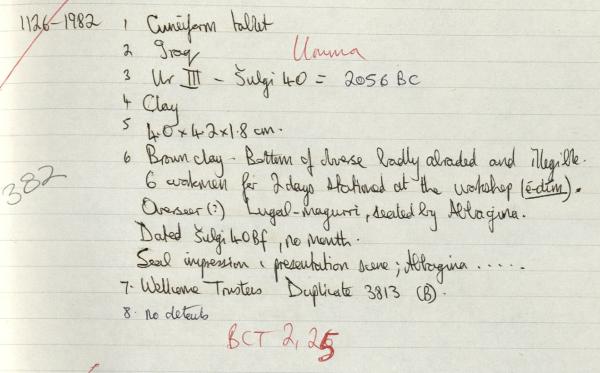 1126-1982
1 Cuneiform tablet
2 Iraq Umma
3 Ur III - Šulgi 40 = 2056 BC
4 Clay
5 4.0 x 4.2 x 1.8 cm.
6 Brown clay - Bottom of obverse badly abraded and illegible.
382
6 workmen for 2 days stationed at the workshop (é-dím).
Overseer (?) Lugal-magurri, sealed by Abbagina.
Dated Šulgi 40Bf, no month.
Seal impression : presentation scene; Abbagina .....
7. Wellcome Trustees Duplicate 3813 (B).
8. no details
BCT 2, 25